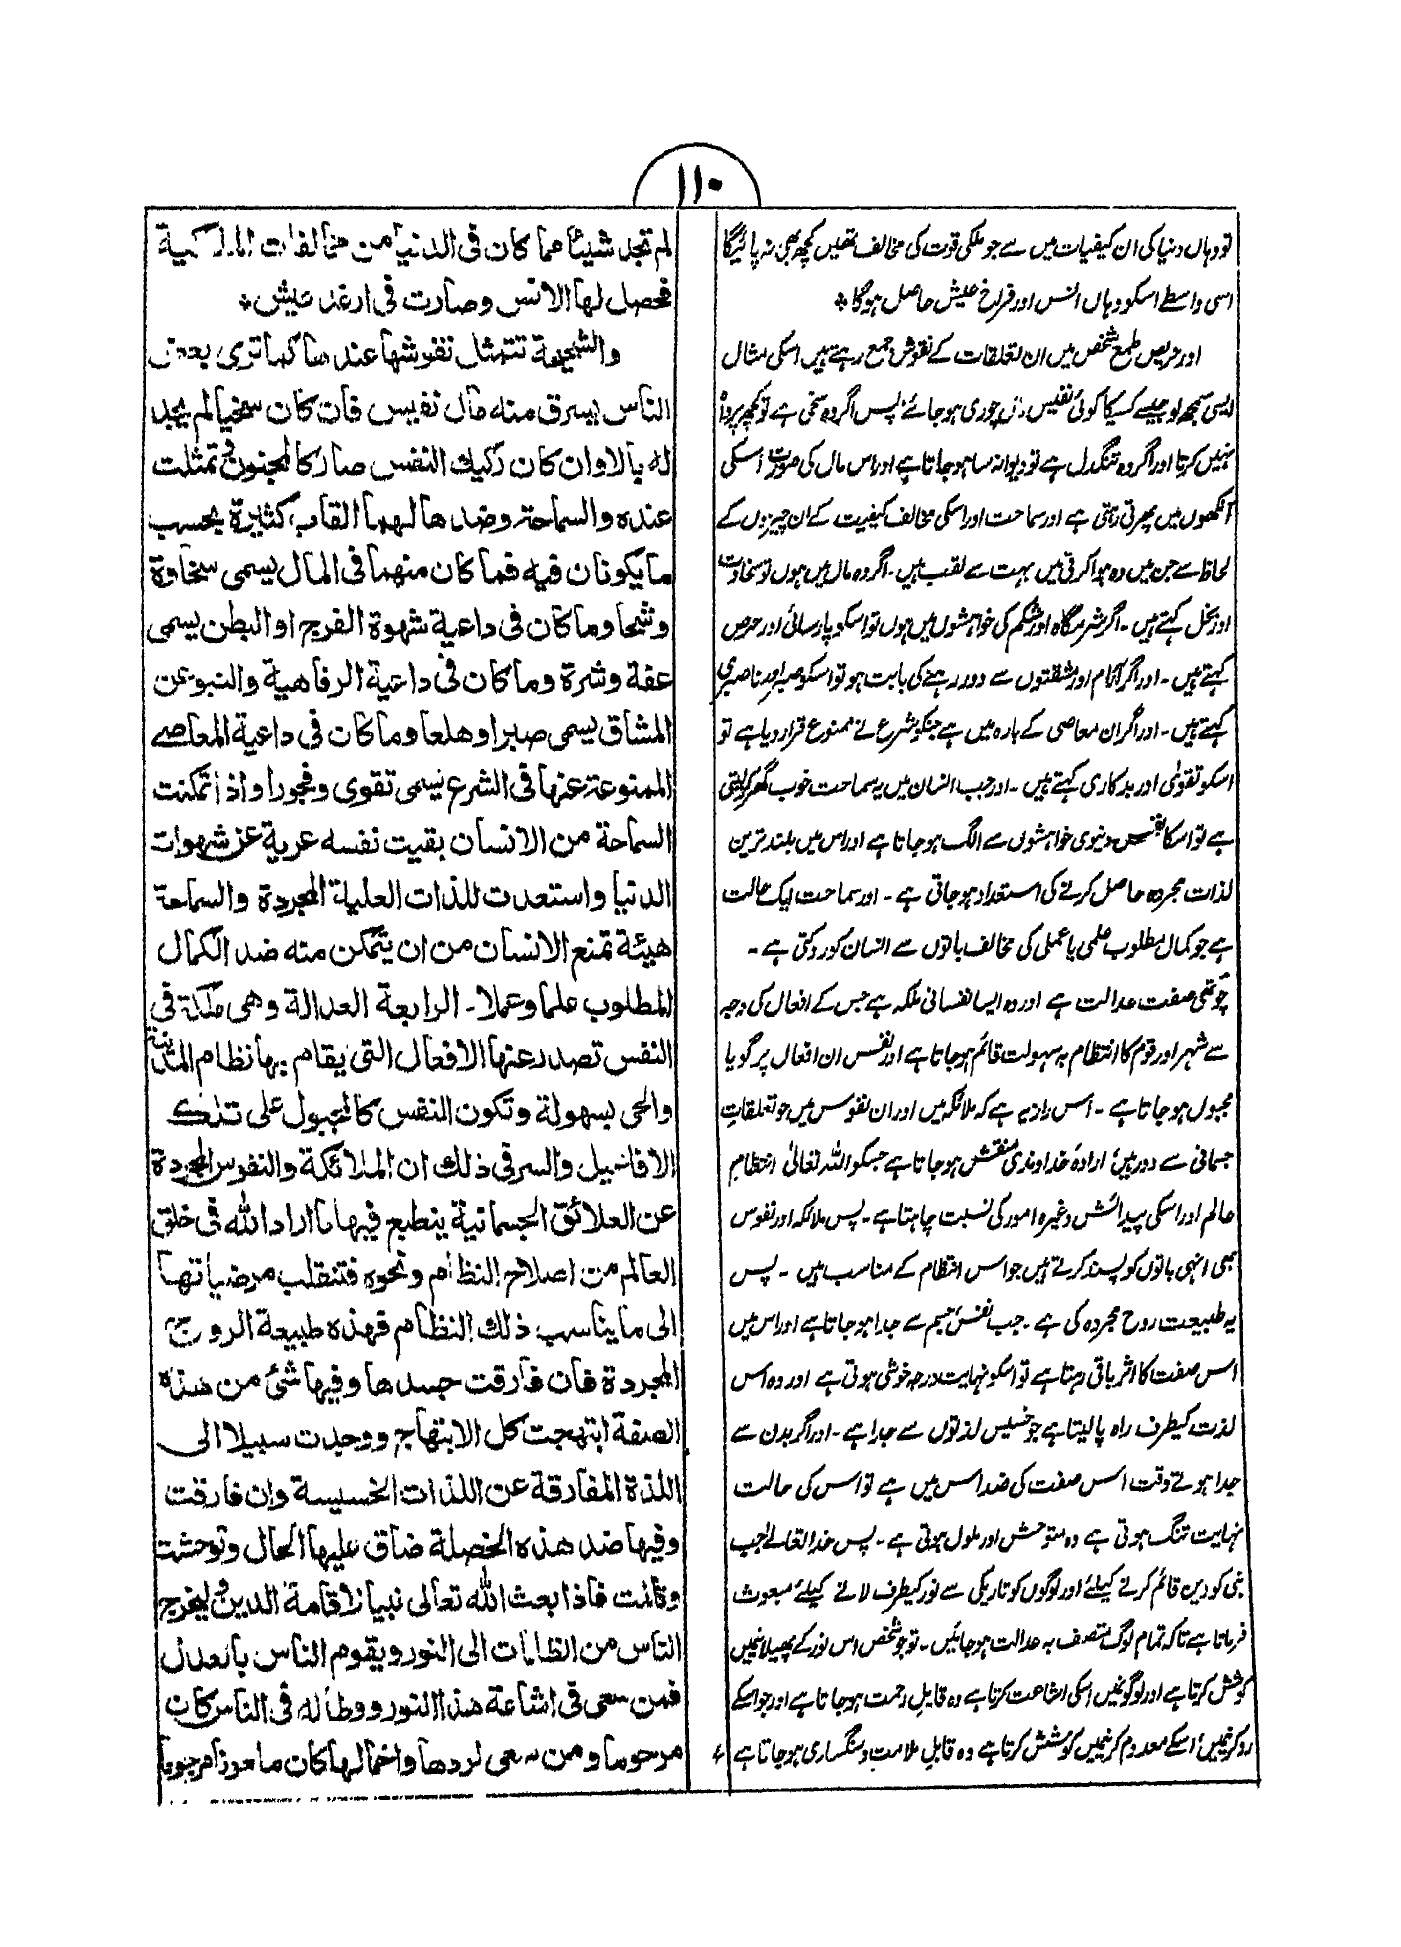 ١١٠
تو وہاں دنیا کی ان کیفیات میں سے جو ملکی قوت کی مخالف تھیں کچھ بھی نہ پائیگا
اسی واسطے اسکو وہاں انس اور فراخ عیش حاصل ہوگا*
اور حریص طمع شخص میں ان تعلقات کے نقوش جمع رہتے ہیں اسکی مثال
ایسی سمجھ لو جیسے کسیکا کوئی نفیس مال چوری ہو جائے پس اگر وہ سخی ہے تو کچھ پروا
نہیں کرتا اور اگر وہ تنگدل ہے تو دیوانہ سا ہو جاتا ہے اور اس مال کی صورت اسکی
آنکھوں میں پھرتی رہتی ہے اور سماحت اور اسکی مخالف کیفیت کے ان چیزوں کے
لحاظ سے جن میں وہ ہوا کرتی ہیں بہت سے لقب ہیں۔ اگر وہ مال میں ہوں تو سخاوت
اور بخل کہتے ہیں۔ اگر شرمگاہ اور شکم کی خواہشوں میں ہوں تو اسکو پارسائی اور حرص
کہتے ہیں۔ اور اگر آرام اور مشقتوں سے دور رہنے کی بابت ہو تو اسکو صبر اور ناصبری
کہتے ہیں۔ اور اگر ان معاصی کے بارہ میں ہے جنکو شرع نے ممنوع قرار دیا ہے تو
اسکو تقویٰ اور بدکاری کہتے ہیں۔ اور جب انسان میں یہ سماحت خوب گھر کر لیتی
ہے تو اسکا نفس دنیوی خواہشوں سے الگ ہو جاتا ہے اور اس میں بلند ترین
لذات مجردہ حاصل کرنے کی استعداد ہو جاتی ہے۔ اور سماحت ایک حالت
ہے جو کمال مطلوب علمی یا عملی کی مخالف باتوں سے انسان کو روکتی ہے۔
چوتھی صفت عدالت ہے اور وہ ایسا نفسانی ملکہ ہے جس کے افعال کی وجہ
سے شہر اور قوم کا انتظام بہ سہولت قائم ہو جاتا ہے اور نفس ان افعال پر گویا
مجبول ہو جاتا ہے۔ اس راز یہ ہے کہ ملائکہ میں اور ان نفوس میں جو تعلقات
جسمانی سے دور ہیں ارادۂ خداوندی منقش ہو جاتا ہے جسکو اللہ تعالیٰ انتظام
عالم اور اسکی پیدائش وغیرہ امور کی نسبت چاہتا ہے۔ پس ملائکہ اور نفوس
بھی انہی باتوں کو پسند کرتے ہیں جو اس انتظام کے مناسب ہیں۔ پس
یہ طبیعت روح مجردہ کی ہے۔ جب نفس جسم سے جدا ہو جاتا ہے اور اس میں
اس صفت کا اثر باقی رہتا ہے تو اسکو نہایت درجہ خوشی ہوتی ہے اور وہ اس
لذت کیطرف راہ پا لیتا ہے جو خسیس لذتوں سے جدا ہے۔ اور اگر بدن سے
جدا ہوتے وقت اس صفت کی ضد اس میں ہے تو اس کی حالت
نہایت تنگ ہوتی ہے وہ متوحش اور ملول ہوتی ہے۔ پس خدا تعالےٰ جب
نبی کو دین قائم کرنے کیلئے اور لوگوں کو تاریکی سے نور کیطرف لانے کیلئے مبعوث
فرماتا ہے تاکہ تمام لوگ متصف بہ عدالت ہو جائیں۔ تو جو شخص اس نور کے پھیلانے میں
کوشش کرتا ہے اور لوگوں میں اسکی اشاعت کرتا ہے وہ قابل رحمت ہو جاتا ہے اور جو اسکے
رد کرنیمیں اسکے معدوم کرنیمیں کوشش کرتا ہے وہ قابل ملامت و سنگساری ہو جاتا ہے
لم تجد شيئا مما كان فى الدنيا من مخالفات الملكية
فحصل لها الانس وصارت فى ارغد عيش*
والشحيحة تتمثل نقوشها عندها كما ترى بعض
الناس يسرق منه مال نفيس فان كان سخيا لم يجد
له بالا وان كان ركيك النفس صار كالمجنون وتمثلت
عنده والسماحة وضدها لهما القاب كثيرة بحسب
ما يكونان فيه فما كان منهما فى المال يسمى سخاوة
وشحا وما كان فى داعية شهوة الفرج او البطن يسمى
عفة وشرة وما كان فى داعية الرفاهية والنبو عن
المشاق يسمى صبرا وهلعا وما كان فى داعية المعاصے
الممنوعة عنها فى الشرع يسمى تقوى وفجورا واذا تمكنت
السماحة من الانسان بقيت نفسه عرية عن شهوات
الدنيا واستعدت للذات العلية المجردة والسماحة
هيئة تمنع الانسان من ان يتمكن منه ضد الكمال
المطلوب علما وعملا۔ الرابعة العدالة وهى ملكة فى
النفس تصدر عنها الافعال التى يقام بها نظام المدينة
والحى بسهولة وتكون النفس كالمجبول على تلك
الافاعيل والسر فى ذلك ان الملائكة والنفوس المجردة
عن العلائق الجسمانية ينطبع فيها ما اراد الله فى خلق
العالم من اصلاح النظام ونحوه فتنقلب مرضياتها
الى ما يناسب ذلك النظام فهذه طبيعة الروح
المجردة فان فارقت جسدها وفيها شئ من هذه
الصفة ابتهجت كل الابتهاج ووجدت سبيلا الى
اللذة المفارقة عن اللذات الخسيسة وان فارقت
وفيها ضد هذه الخصلة ضاق عليها الحال وتوحشت
وتالمت فاذا بعث الله تعالى نبيا لاقامة الدين وليخرج
الناس من الظلمات الى النور ويقوم الناس بالعدل
فمن سعى فى اشاعة هذا النور ووطأ له فى الناس كان
مرحوما ومن سعى لردها واخمالها كان ملعونا مرجوما